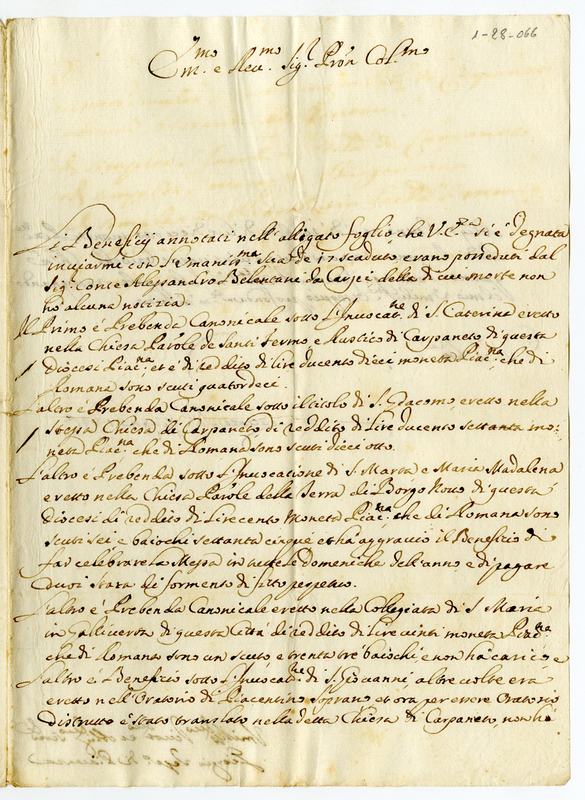 1-28-066
Jll.mo
m. e Rev.mo Sig.r Pron Col.mo
Li Beneficij annotati nell'allegato foglio, che V.S. si è degnata
inviarmi con l'umaniss.ma sua de 17 scaduto, erano posseduti dal
Sig.r Conte Alessandro Belentani da Carpi della di cui morte non
hò alcuna notizia.
Il Primo è Prebenda Canonicale sotto l'Invocat.ne di S. Caterina eretto
nella Chiesa Parole de Santi Fermo, e Rustico di Carpaneto di questa
Diocesi Piac.na, et è di reddito di lire ducento dieci moneta Piac.na, che di
Romana sono scuti quatordeci.
L'altro è Prebenda Canonicale sotto il titolo di S. Giacomo, eretto nella
stessa Chiesa di Carpaneto di reddito di Lire ducento settanta mo:
neta Piac.na che di Romana sono scuti dieciotto.
L'altro è Prebenda sotto l'Invocatione di S. Marta e Maria Madalena
eretto nella Chiesa Parole della Terra di Borgo Novo di questa
Diocesi di reddito di Lire cento Moneta Piac.na che di Romana sono
scuti sei e baiochi settanta cinque et hà aggravio il Beneficio di
far celebrare la Messa in tutte le domeniche dell'anno e di pagare
duoi stara di formento di fitto perpetuo.
L'altro è Prebenda Canonicale eretto nella Collegiata di S. Maria
in Galliverta di questa Città di reddito di lire vinti moneta Piac.na
che di Romana sono un scuto e trenta trè baiochi, e non hà carico e
L'altro è Beneficio sotto l'Invocat.ne di S. Giovanni altre volte era
eretto nell'Oratorio di Piacentino soprano, et ora per essere Oratorio
distrutto è stato translato nella detta Chiesa di Carpaneto, non hà